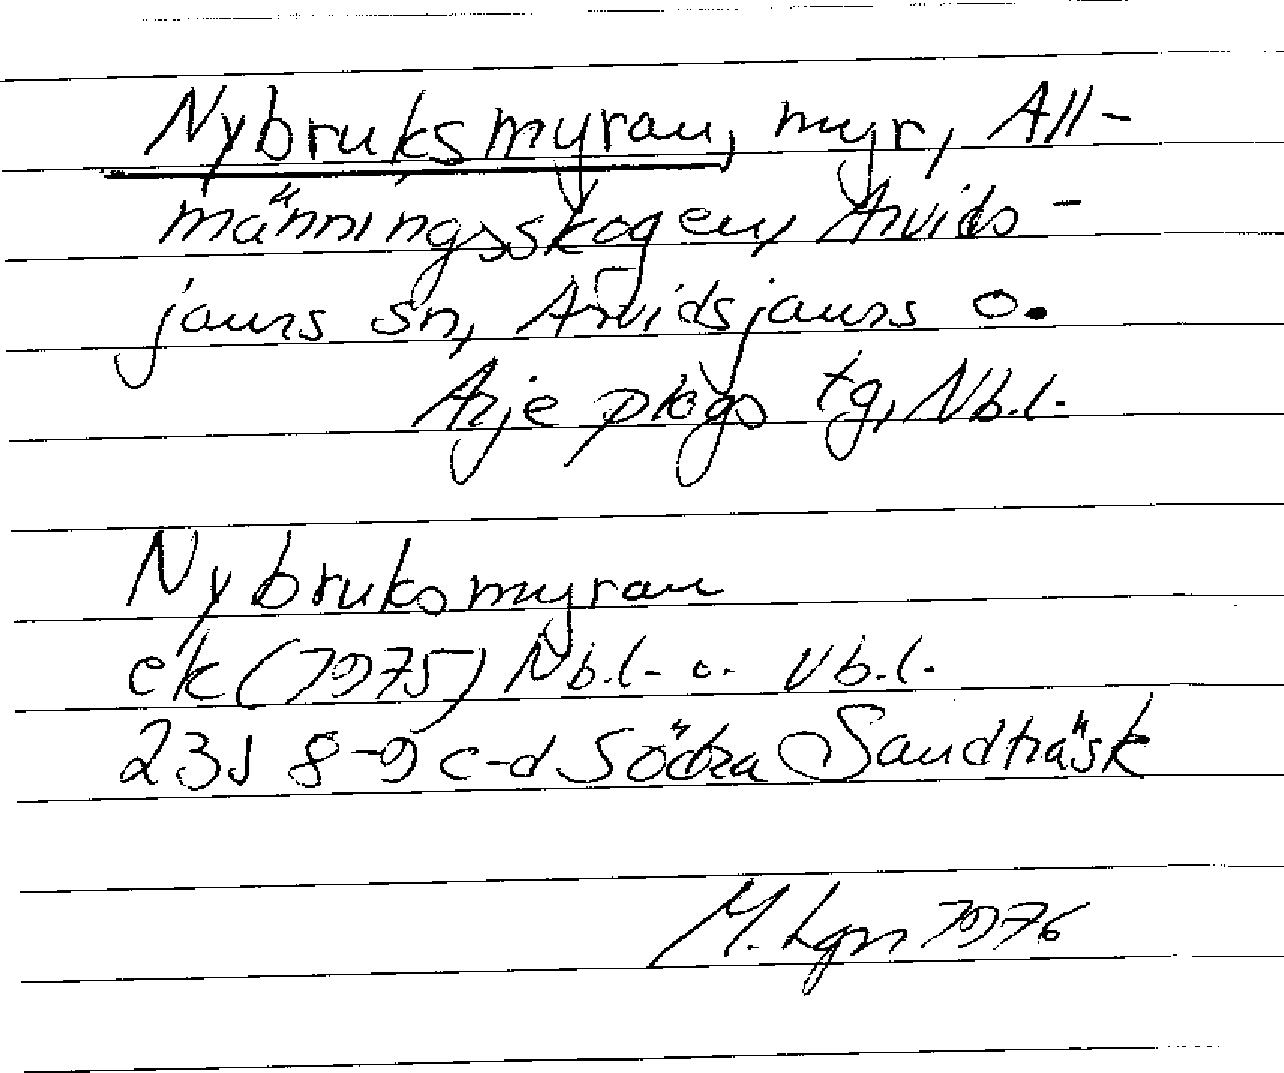 Nybruksmyran, myr, All-
männingsskogen, Arvids-
jaurs sn, Arvidsjaurs o.
Arjeplogs tg, Nb.l.
Nybruksmyran
ek (1975) Nb.l. o. Vb.l.
23J 8-9 c-d Södra Sandträsk
M. Lgn 1976